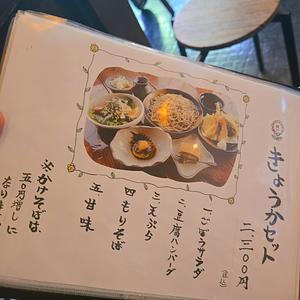 きょうかセット
二三〇〇円
(税込)
一、ごぼうサラダ
二、豆腐ハンバーグ
三、天ぷら
四、もりそば
五、甘味
※かけそばは
五〇円増しに
なります